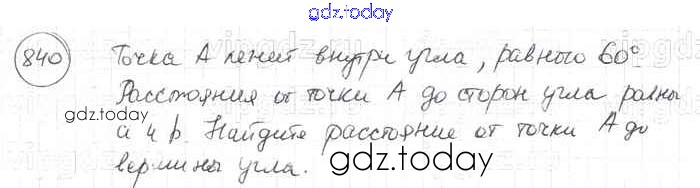 gdz.today
840 Точка A лежит внутри угла, равного 60°.
Расстояния от точки A до сторон угла равны
gdz.today
a и b. Найдите расстояние от точки A до
вершины угла.
gdz.today